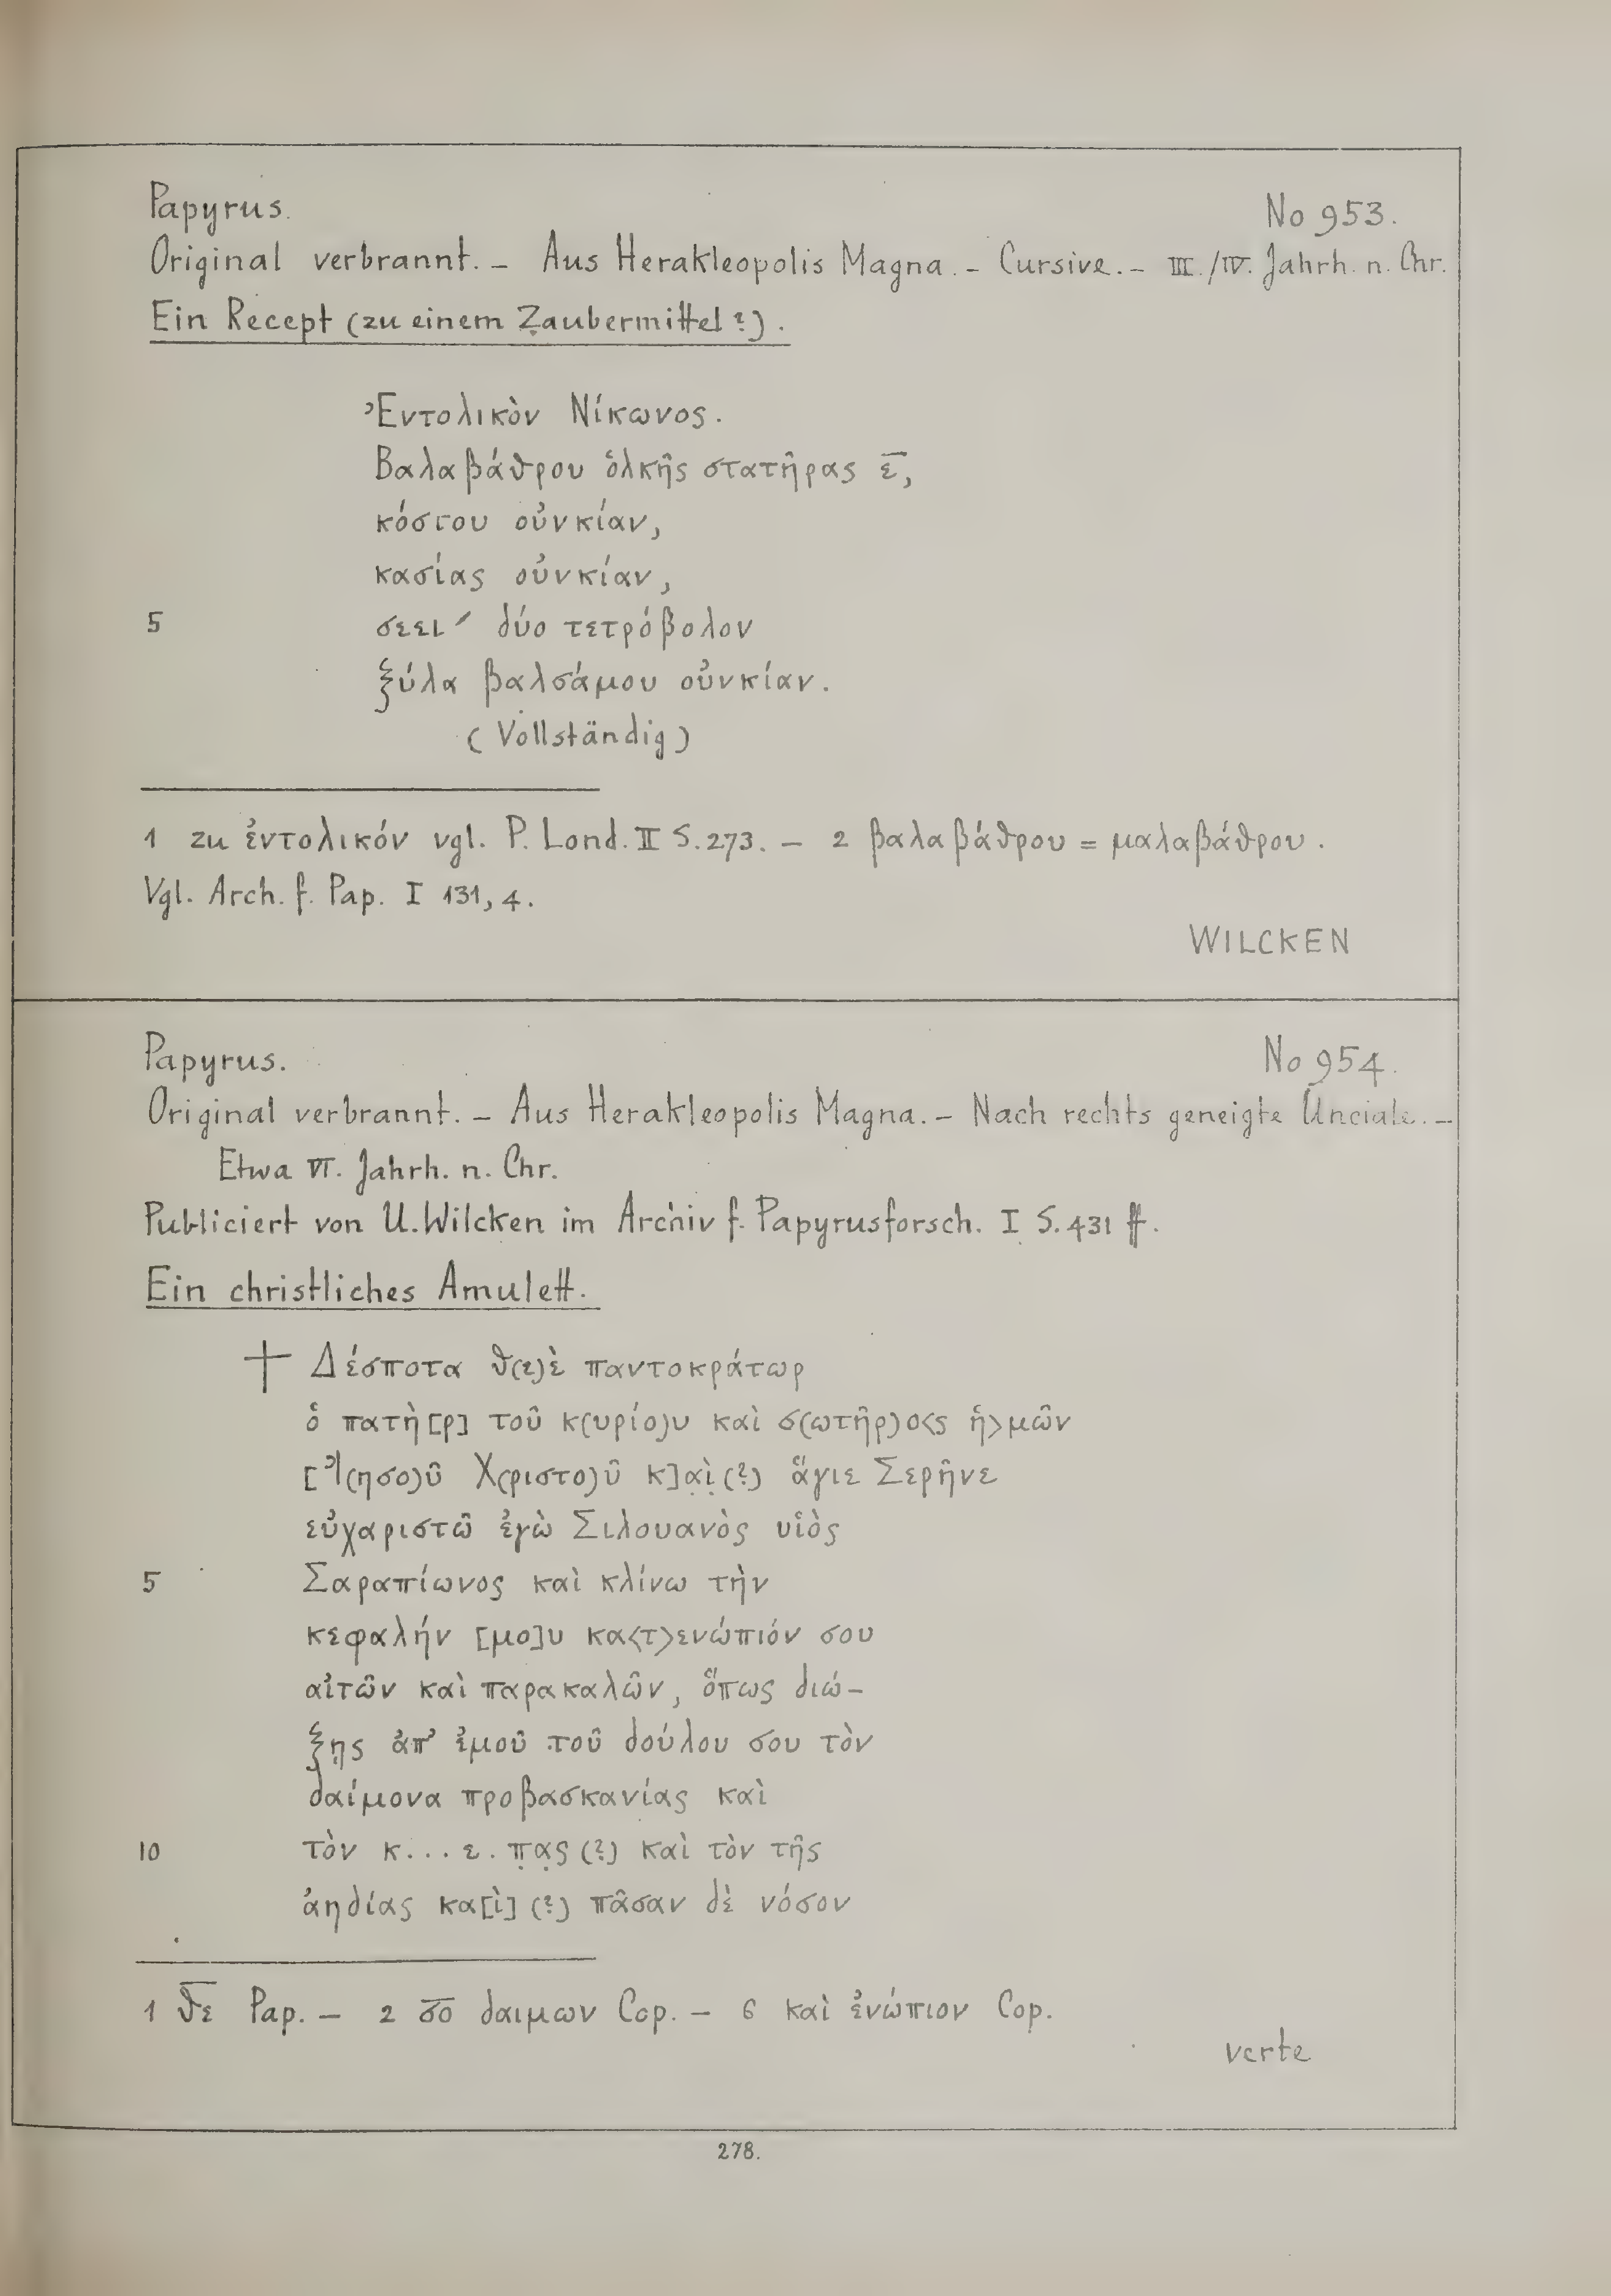 Papyrus.
No 953.
Original verbrannt. – Aus Herakleopolis Magna. – Cursive. – III./IV. Jahrh. n. Chr.
Ein Recept (zu einem Zaubermittel?).
Ἐντολικὸν Νίκωνος.
Βαλαβάθρου ὁλκῆς στατῆρας ε̅,
κόστου οὐνκίαν,
κασίας οὐνκίαν,
5 σεει´ δύο τετρόβολον
ξύλα βαλσάμου οὐνκίαν.
(Vollständig)
1 zu ἐντολικόν vgl. P. Lond. II S. 273. – 2 βαλαβάθρου = μαλαβάθρου.
Vgl. Arch. f. Pap. I 131, 4.
WILCKEN
Papyrus.
No 954.
Original verbrannt. – Aus Herakleopolis Magna. – Nach rechts geneigte Unciale. –
Etwa VI. Jahrh. n. Chr.
Publiciert von U. Wilcken im Archiv f. Papyrusforsch. I S. 431 ff.
Ein christliches Amulett.
☩ Δέσποτα θ(ε)ὲ παντοκράτωρ
ὁ πατὴ[ρ] τοῦ κ(υρίο)υ καὶ σ(ωτῆρ)ο<ς ἡ>μῶν
[Ἰ(ησο)ῦ Χ(ριστο)ῦ κ]α̣ὶ̣ (?) ἅγιε Σερῆνε
εὐχαριστῶ ἐγὼ Σιλουανὸς υἱὸς
5 Σαραπίωνος καὶ κλίνω τὴν
κεφαλήν [μο]υ κα<τ>ενώπιόν σου
αἰτῶν καὶ παρακαλῶν, ὅπως διώ–
ξῃς ἀπ’ ἐμοῦ τοῦ δούλου σου τὸν
δαίμονα προβασκανίας καὶ
10 τὸν κ...ε. π̣α̣ς (?) καὶ τὸν τῆς
ἀηδίας κα[ὶ] (?) πᾶσαν δὲ νόσον
1 θ̅ε̅ Pap. – 2 σ̅ο̅ δαιμων Cop. – 6 καὶ ἐνώπιον Cop.
verte
278.